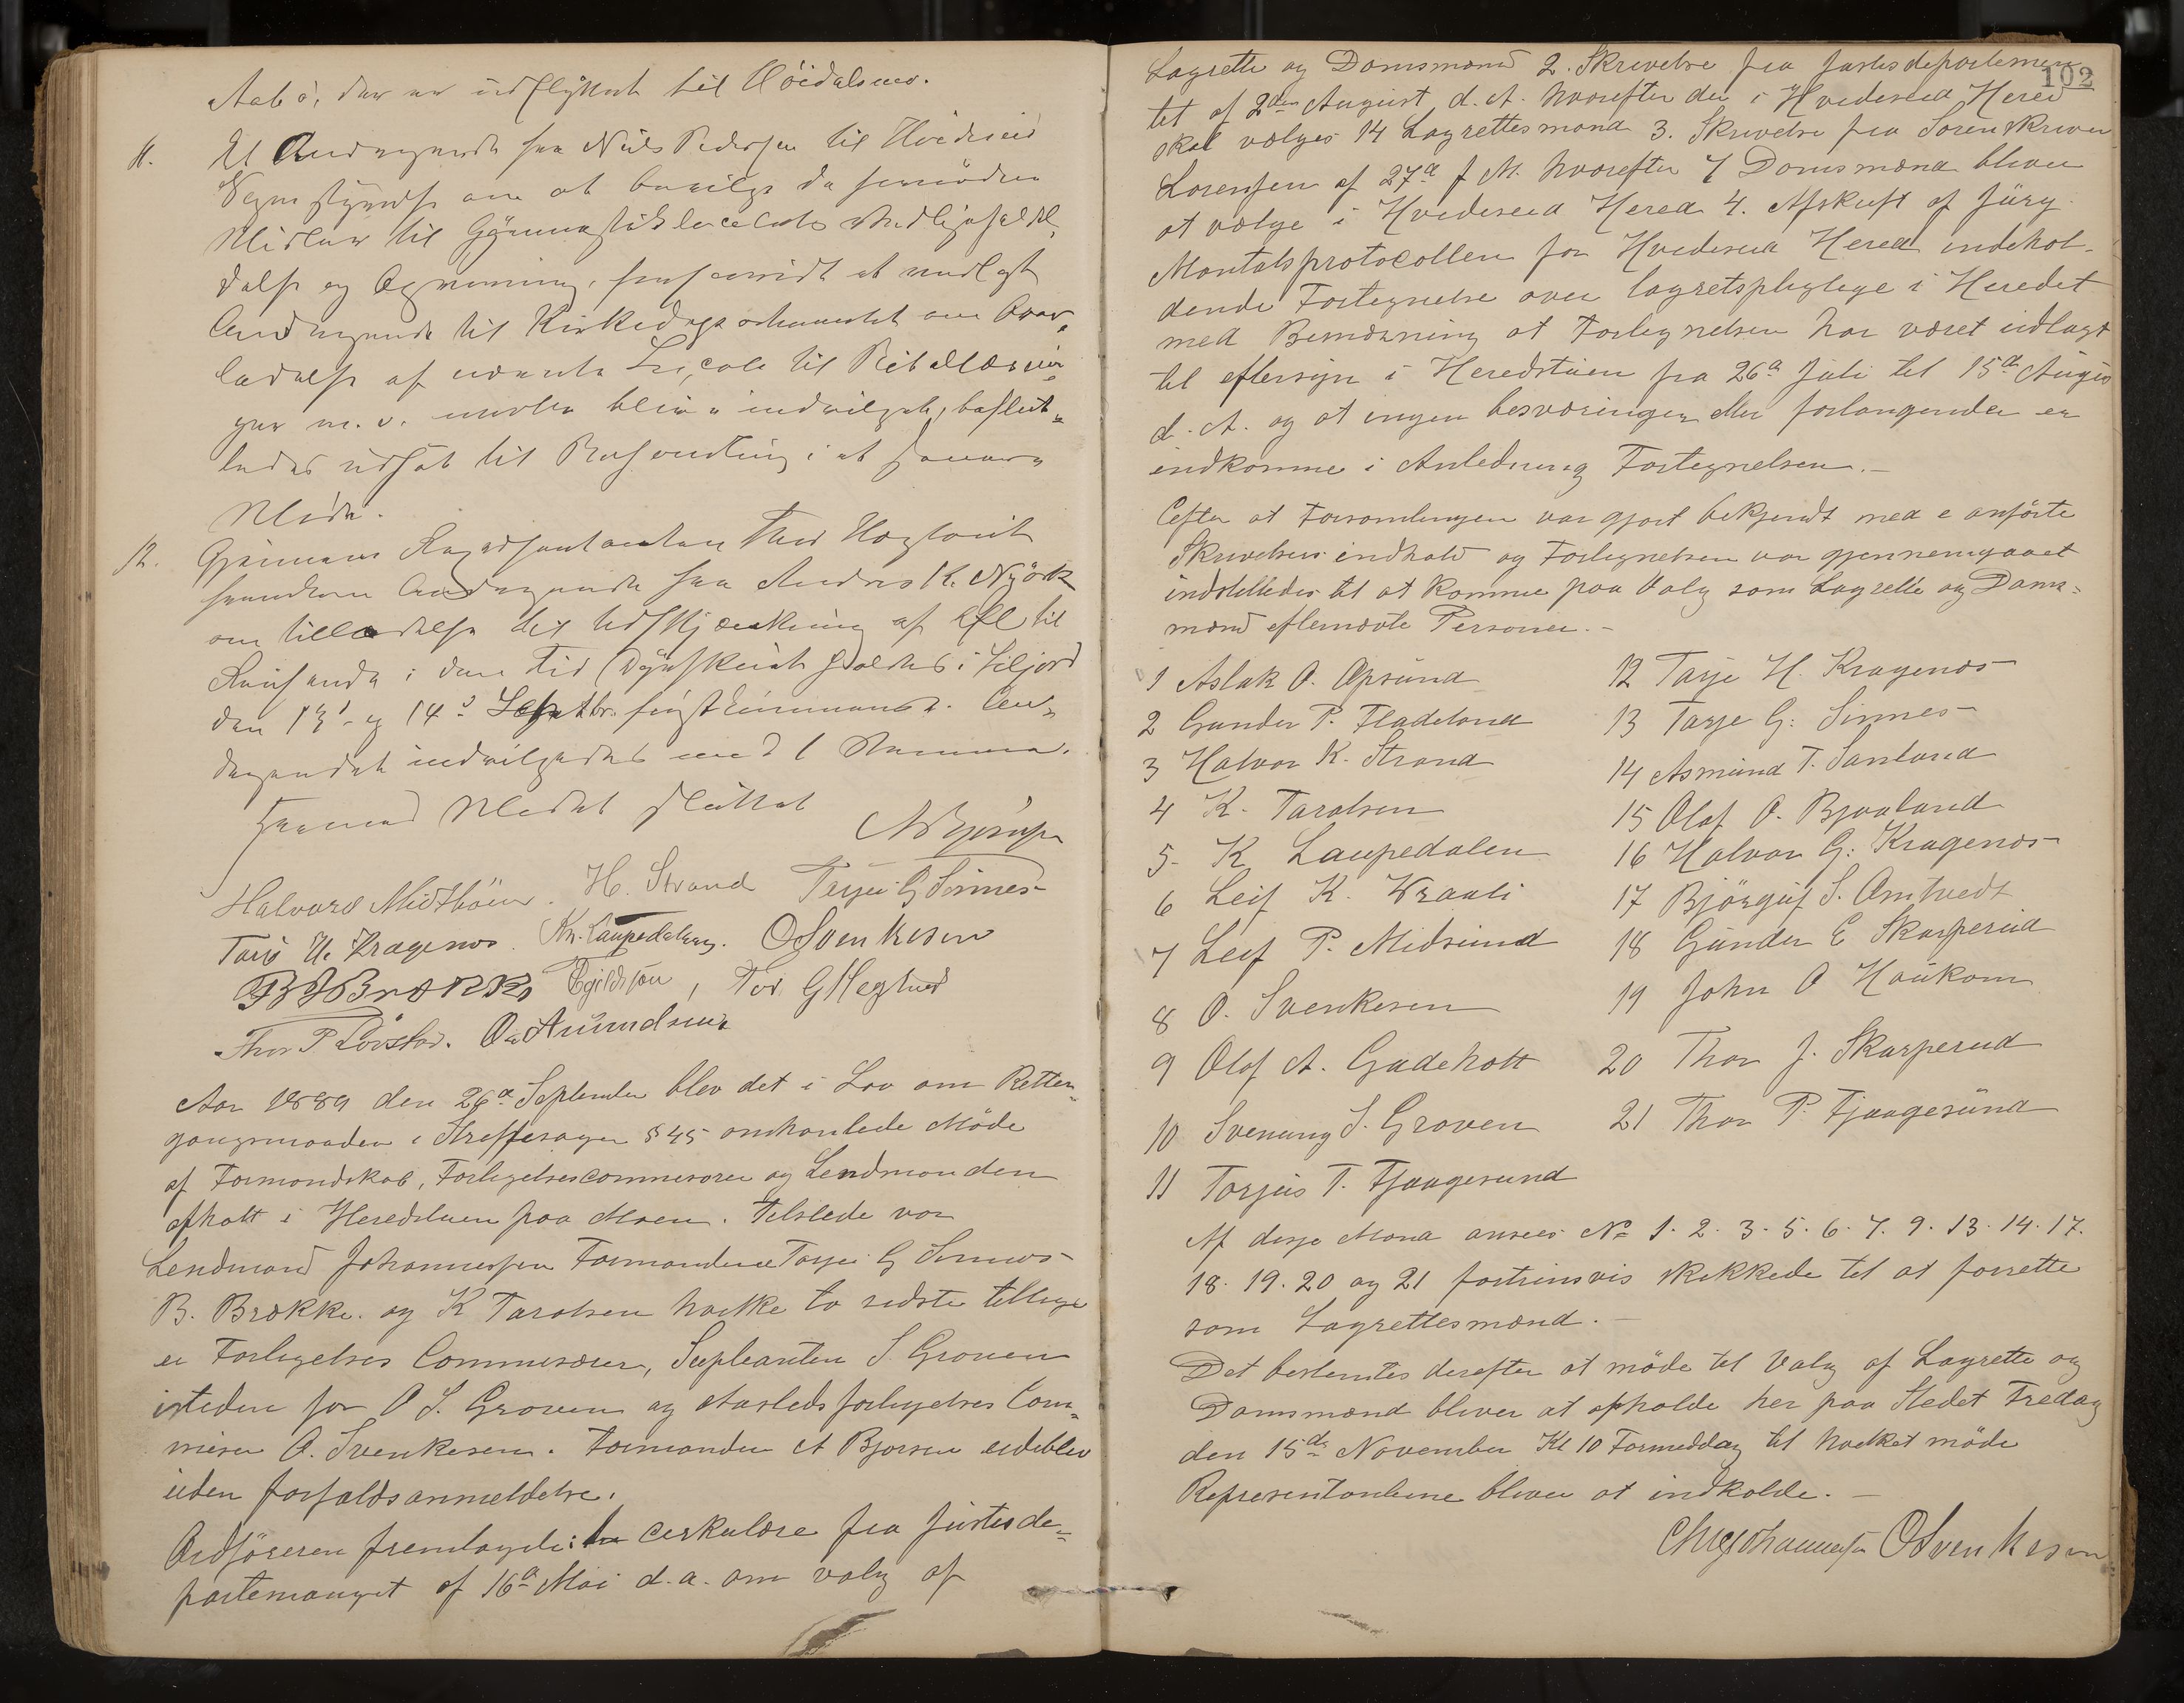 Aabø, der er udflyttet til Høidalsmo.
11. Et Andragende fra Niels Pedersen til Hvideseid
om at bevilge de fornødne
Midler til Gymnastiklocalets Vedligehold-
delse og Opvarming, forsaavidt et vedlagt
Andragende til Kirkedepartementet om Over-
ladelse af nævnte Locale til Bibellæsnin-
ger m. v. maatte blive indvilget, beslut-
tedes udsat til Behandling i et senere
Møde.
12. Gjennem Repræsentanten Thor Hegtveit
fremkom Andragende fra Anders K. Nyørk
om tilladelse til Udskjænkning af Øl til
Reisende i den Tid Dyrskuet holdes i Siljord
den 13de og 14de Septbr. førstkommende. An-
dragendet indvilgedes med 1 Stemme.
Hermed Mødet sluttet
A Bjørnsen
Halvard Midtbøen. H. Strand Tarjei G Sinnes
Tarje H. Kragenæs. Kn. Laupedalen. O Svenkesen
B J Brække Egildsjøn, Tor G Hegtved
Thor P. Lövstad. O. Aamundsen
Aar 1889 den 26de September blev det i Lov om Retter-
gangsmaaden i Straffesager § 45 omhanlede Möde
af Formandskab, Forligelsescommisærer og Lendmanden
afholt i Heredstuen paa Moen. Tilstede var
Lendmand Johannessen Formændene Tarje G Sinnes
B. Brække. og K Taralsen hvilke to sidste tillige
er Forligelses Commisærer, Supleanten S. Groven
isteden for O S. Groven og Aasleds forligelses Com-
misær O. Svenkesen. Formanden A Bjørsen udeblev
uden forfaldsanmeldelse.
Ordföreren fremlagde: cirkulære fra justisde-
partemanget af 16de Mai d. a. om valg af
102
Lagrette og Domsmænd 2. Skrivelse fra justisdepartemen
tet af 2den August d. A. hvorefter der i Hvideseid Hered
skal vælges 14 Lagrettesmænd 3. Skrivelse fra Sorenskriver
Lorensen af 27de f M. hvorefter 7 Domsmænd bliver
at vælge i Hvideseid Hered 4. Afskrift af Jury
Mantalsprotocollen for Hvideseid Hered indehol-
dende Fortegnelse over lagretspligtige i Heredet
med Bemærning at Fortegnelsen har været udlagt
til eftersyn i Heredstuen fra 26de Juli til 15de Augus
d. A. og at ingen besværinger eller forlangender er
indkomne i Anledning Fortegnelsen.-
Efter at Forsamlingen var gjort bekjendt med e anförte
Skrivelsers indhold og Fortegnelsen var gjennemgaaet
indstilledes til at komme paa Valg som Lagrette og Doms-
mænd eftenævte Personer.-
1 Aslak O. Opsund
2 Gunder P. Fladeland
3 Halvor K. Strand
4 K. Taralsen
5. K Laupedalen
6 Leif K. Vraali
7 Leif P. Midsund
8 O. Svenkesen
9 Olaf A. Gadeholt
10 Svenung S. Groven
11 Torjus T. Fjaagesund
12 Tarje H. Kragenæs
13 Tarje G: Sinnes
14 Asmund T. Sanland
15 Olaf O. Bjaaland
16 Halvor G: Kragenæs
17 Björguf S. Omtvedt
18 Gunder E Skarperud
19 John O Haukom
20 Thor J. Skarperud
21 Thor P. Fjaagesund
Af disse Mænd ansees No 1. 2. 3. 5. 6. 7. 9. 13. 14. 17.
18. 19. 20 og 21 fortrinsvis skikkede til at forrette
som Lagrettesmænd.-
Det bestemtes derefter at möde til Valg af Lagrette og
Domsmænd bliver at afholde her paa Stedet Fredag
den 15de November Kl 10 Formeddag til hvilket möde
Representanterne bliver at indkalde.-
Chr Johannessen O Svenkesen